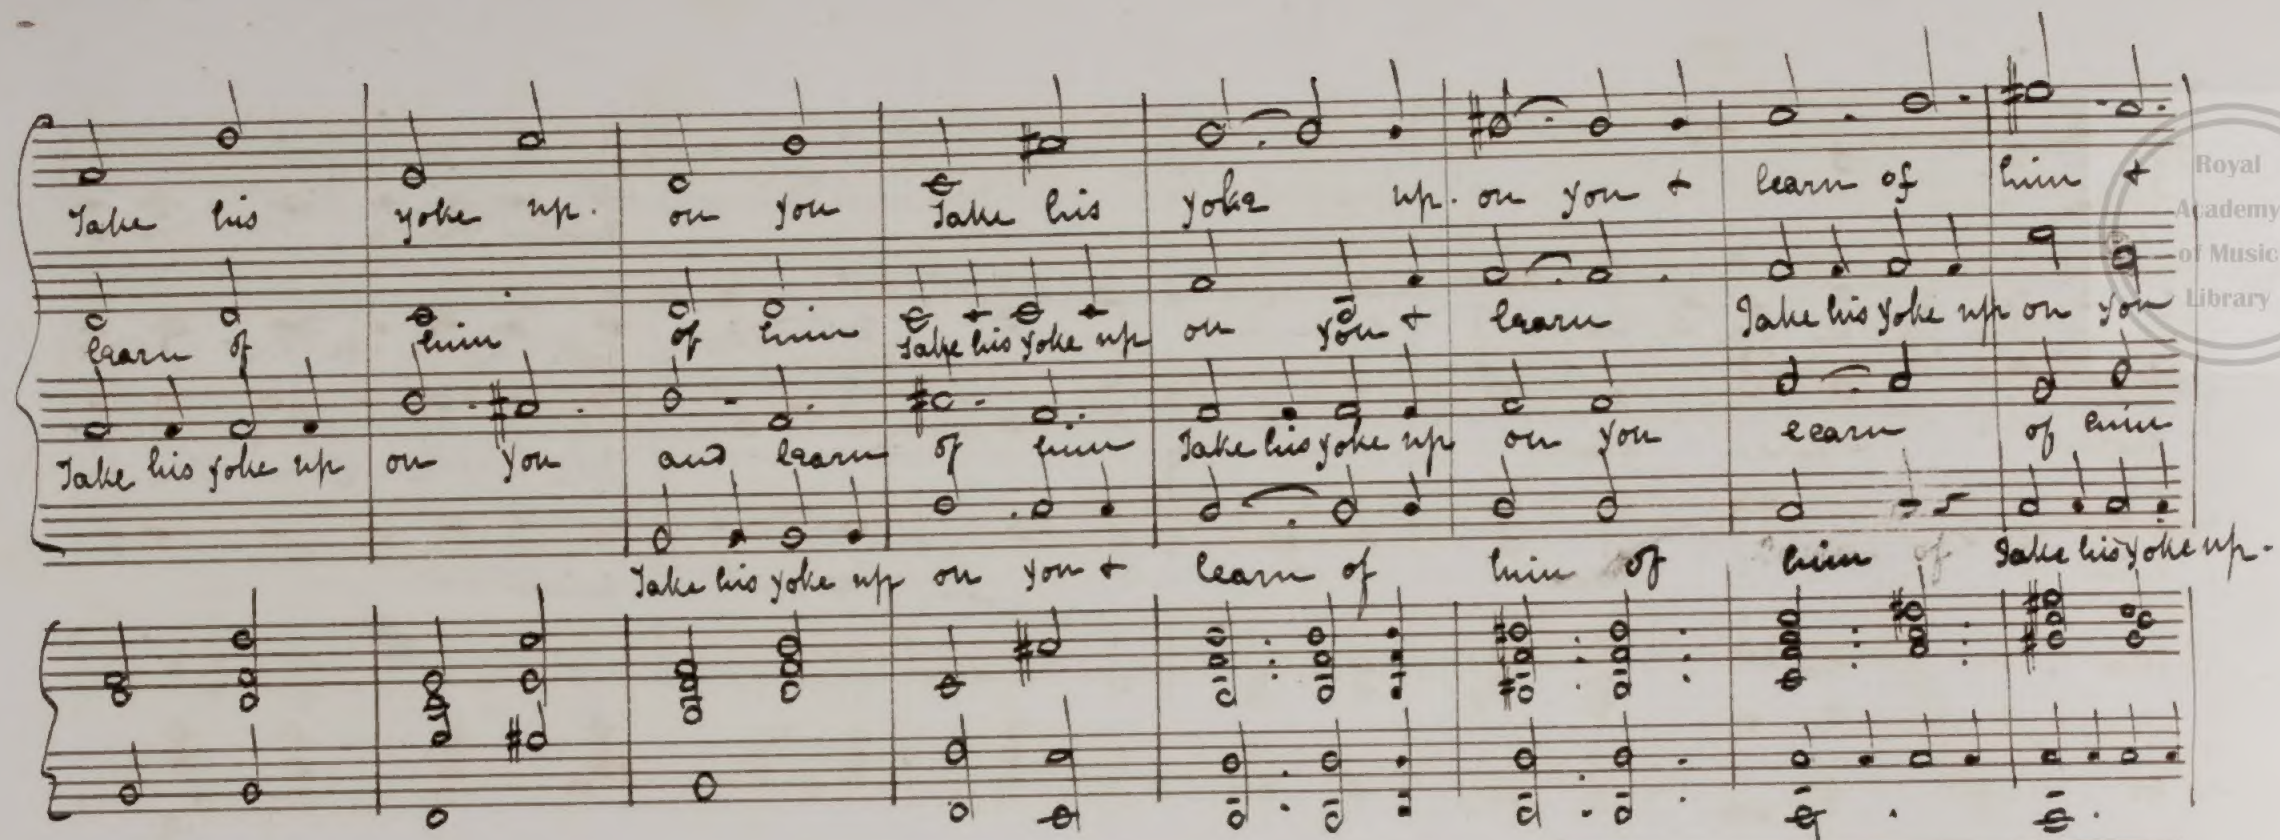 Take his yoke up. on you Take his yoke up. on you + learn of him +
learn of him of him Take his yoke up on you + learn Take his yoke up on you
Take his yoke up on you and learn of him Take his yoke up on you learn of him
Take his yoke up on you + learn of him of him of Take his yoke up.
Royal
Academy
of Music
Library